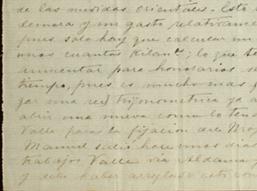 de las medidas orientales. Esto
demora y un gasto relativamen
pues solo hay que calcular un
unas cuantas Kilom.; lo que te
aumentar para honorarios s
tiempo, pues es mucho mas
gar una red trigonometrica ya a
abrir una nueva como lo ten
Valle para la fijacion del No
Manuel salio hace unos dias
trabajos Valle via Aldama y
y debe haber arreglado este con